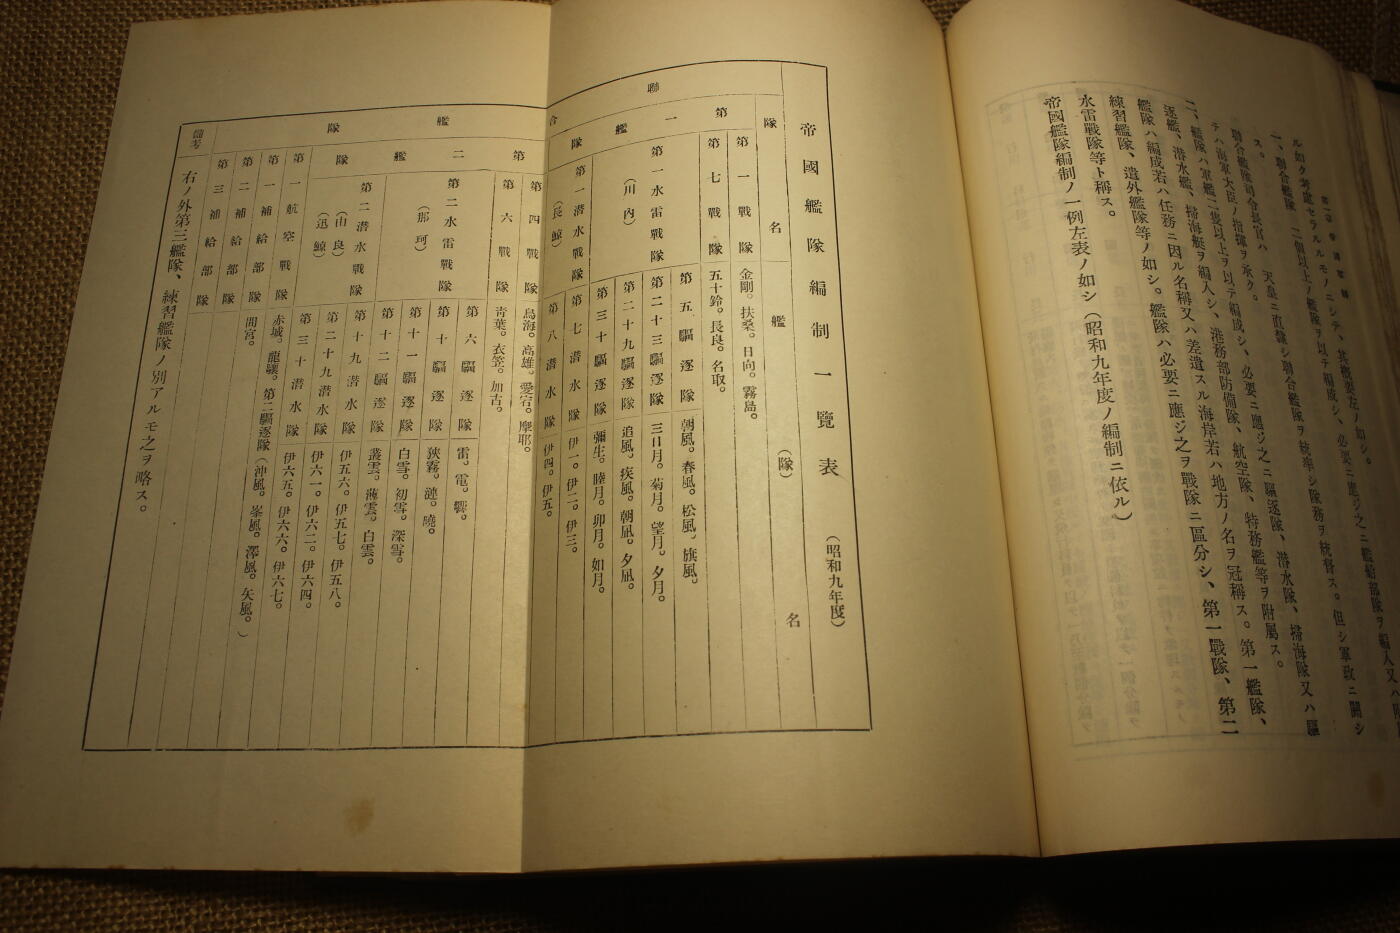 第一章 帝國軍艦
ル如ク考慮セラルルモノニシテ、其概要左ノ如シ。
一、聯合艦隊 二個以上ノ艦隊ヲ以テ編成シ、必要ニ應ジ之ニ艦船部隊ヲ編入又ハ附屬
ス。
聯合艦隊司令長官ハ 天皇ニ直隷シ聯合艦隊ヲ統率シ隊務ヲ統督ス。但シ軍政ニ關シ
テハ海軍大臣ノ指揮ヲ承ク。
二、艦隊ハ軍艦二隻以上ヲ以テ編成シ、必要ニ應ジ之ニ驅逐隊、潜水隊、掃海隊又ハ驅
逐艦、潜水艦、掃海艇ヲ編入シ、港務部防備隊、航空隊、特務艦等ヲ附屬ス。
艦隊ハ編成若ハ任務ニ因ル名稱又ハ差遣スル海岸若ハ地方ノ名ヲ冠稱ス。第一艦隊、
練習艦隊、遣外艦隊等ノ如シ。艦隊ハ必要ニ應ジ之ヲ戰隊ニ區分シ、第一戰隊、第二
水雷戰隊等ト稱ス。
帝國艦隊編制ノ一例左表ノ如シ(昭和九年度ノ編制ニ依ル)
帝國艦隊編制一覽表 (昭和九年度)
隊名 艦(隊)名
聯合艦隊
第一艦隊
第一戰隊 金剛。扶桑。日向。霧島。
第七戰隊 五十鈴。長良。名取。
第一水雷戰隊 (川內)
第五驅逐隊 朝風。春風。松風。旗風。
第二十三驅逐隊 三日月。菊月。望月。夕月。
第二十九驅逐隊 追風。疾風。朝凪。夕凪。
第三十驅逐隊 彌生。睦月。卯月。如月。
第一潜水戰隊 (長鯨)
第七潜水隊 伊一。伊二。伊三。
第八潜水隊 伊四。伊五。
第二艦隊
第四戰隊 鳥海。高雄。愛宕。摩耶。
第六戰隊 靑葉。衣笠。加古。
第二水雷戰隊 (那珂)
第六驅逐隊 雷。電。響。
第十驅逐隊 狹霧。漣。曉。
第十一驅逐隊 白雪。初雪。深雪。
第十二驅逐隊 叢雲。薄雲。白雲。
第二潜水戰隊 (由良) (迅鯨)
第十九潜水隊 伊五六。伊五七。伊五八。
第二十九潜水隊 伊六一。伊六二。伊六四。
第三十潜水隊 伊六五。伊六六。伊六七。
第一航空戰隊 赤城。龍驤。第二驅逐隊(沖風。峯風。澤風。矢風。)
第一補給部隊 間宮。
第二補給部隊
第三補給部隊
備考 右ノ外第三艦隊、練習艦隊ノ別アルモ之ヲ略ス。